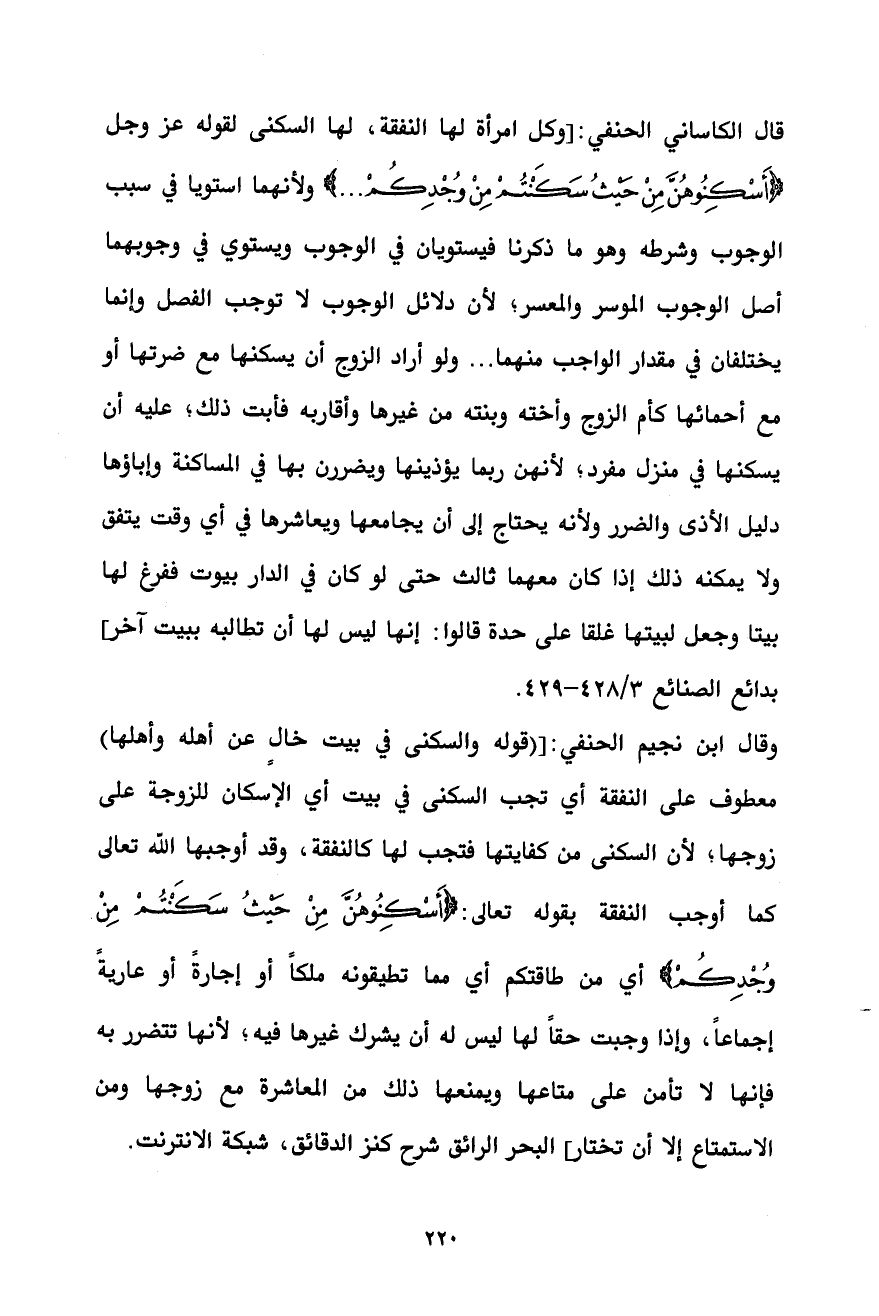 قال الكاساني الحنفي:[وكل امرأة لها النفقة، لها السكنى لقوله عز وجل
﴿أَسْكِنُوهُنَّ مِنْ حَيْثُ سَكَنْتُمْ مِنْ وُجْدِكُمْ...﴾ ولأنهما استويا في سبب
الوجوب وشرطه وهو ما ذكرنا فيستويان في الوجوب ويستوي في وجوبهما
أصل الوجوب الموسر والمعسر؛ لأن دلائل الوجوب لا توجب الفصل وإنما
يختلفان في مقدار الواجب منهما... ولو أراد الزوج أن يسكنها مع ضرتها أو
مع أحمائها كأم الزوج وأخته وبنته من غيرها وأقاربه فأبت ذلك؛ عليه أن
يسكنها في منزل مفرد؛ لأنهن ربما يؤذينها ويضررن بها في المساكنة وإباؤها
دليل الأذى والضرر ولأنه يحتاج إلى أن يجامعها ويعاشرها في أي وقت يتفق
ولا يمكنه ذلك إذا كان معهما ثالث حتى لو كان في الدار بيوت ففرغ لها
بيتا وجعل لبيتها غلقا على حدة قالوا: إنها ليس لها أن تطالبه ببيت آخر]
بدائع الصنائع ٤٢٨/٣-٤٢٩.
وقال ابن نجيم الحنفي:[(قوله والسكنى في بيت خالٍ عن أهله وأهلها)
معطوف على النفقة أي تجب السكنى في بيت أي الإسكان للزوجة على
زوجها؛ لأن السكنى من كفايتها فتجب لها كالنفقة، وقد أوجبها الله تعالى
كما أوجب النفقة بقوله تعالى:﴿أَسْكِنُوهُنَّ مِنْ حَيْثُ سَكَنْتُمْ مِنْ
وُجْدِكُمْ﴾ أي من طاقتكم أي مما تطيقونه ملكاً أو إجارةً أو عاريةً
إجماعاً، وإذا وجبت حقاً لها ليس له أن يشرك غيرها فيه؛ لأنها تتضرر به
فإنها لا تأمن على متاعها ويمنعها ذلك من المعاشرة مع زوجها ومن
الاستمتاع إلا أن تختار] البحر الرائق شرح كنز الدقائق، شبكة الانترنت.
٢٢٠